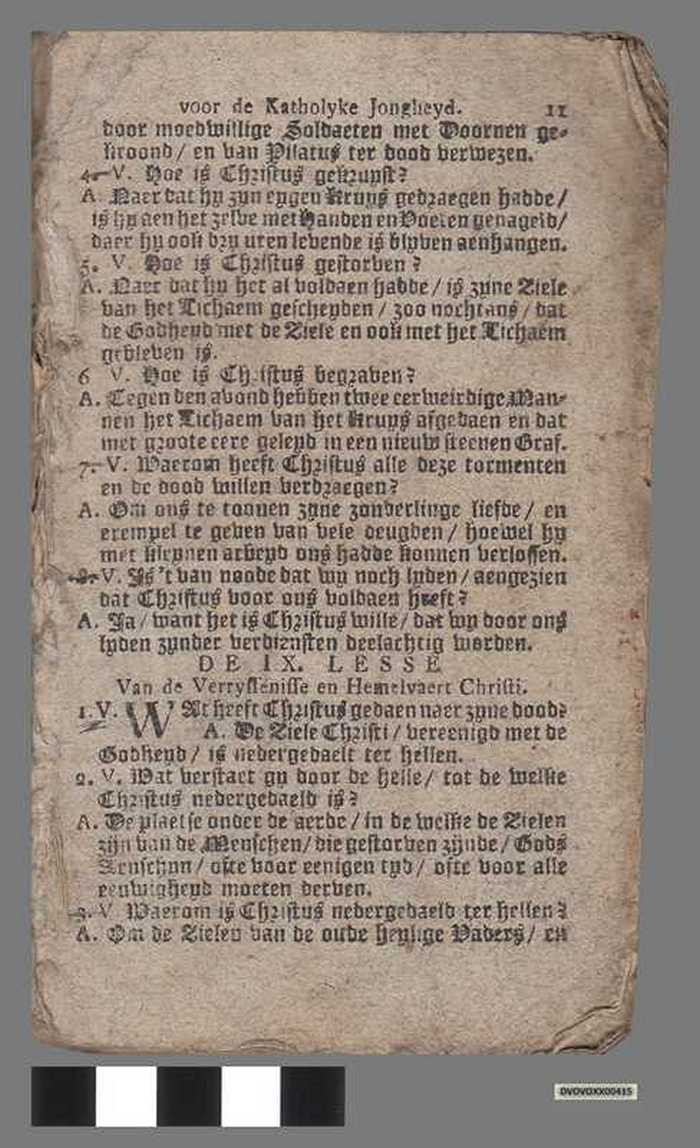 voor de Katholyke Jongheyd. 11
door moedwillige Soldaeten met Doornen ge-
kroond/ en van Pilatus ter dood verwezen.
4. V. Hoe is Christus gekruyst?
A. Naer dat hy zyn eygen Kruys gedraegen hadde/
is hy aen het zelve met Handen en Voeten genageld/
daer hy ook dry uren levende is blyven aenhangen.
5. V. Hoe is Christus gestorven?
A. Naer dat hy het al voldaen hadde/ is zyne Ziele
van het Lichaem gescheyden/ zoo nochtans/ dat
de Godheyd met de Ziele en ook met het Lichaem
gebleven is.
6 V. Hoe is Christus begraven?
A. Tegen den avond hebben twee eerweirdige Man-
nen het Lichaem van het Kruys afgedaen en dat
met groote eere geleyd in een nieuw steenen Graf.
7. V. Waerom heeft Christus alle deze tormenten
en de dood willen verdraegen?
A. Om ons te toonen zyne zonderlinge liefde/ en
exempel te geven van vele deugden/ hoewel hy
met kleynen arbeyd ons hadde konnen verlossen.
8. V. Is 't van noode dat wy noch lyden/ aengezien
dat Christus voor ons voldaen heeft?
A. Ja/ want het is Christus wille/ dat wy door ons
lyden zynder verdiensten deelachtig worden.
DE IX. LESSE
Van de Verryssenisse en Hemelvaert Christi.
1. V. WAt heeft Christus gedaen naer zyne dood?
A. De Ziele Christi/ vereenigd met de
Godheyd/ is nedergedaelt ter hellen.
2. V. Wat verstaet gy door de helle/ tot de welke
Christus nedergedaeld is?
A. De plaetse onder de aerde/ in de welke de Zielen
zijn van de Menschen/ die gestorven zijnde/ Gods
Aenschyn/ ofte voor eenigen tyd/ ofte voor alle
eeuwigheyd moeten derven.
3. V. Waerom is Christus nedergedaeld ter hellen?
A. Om de Zielen van de oude heylige Vaders/ en
DVOVOXX00415